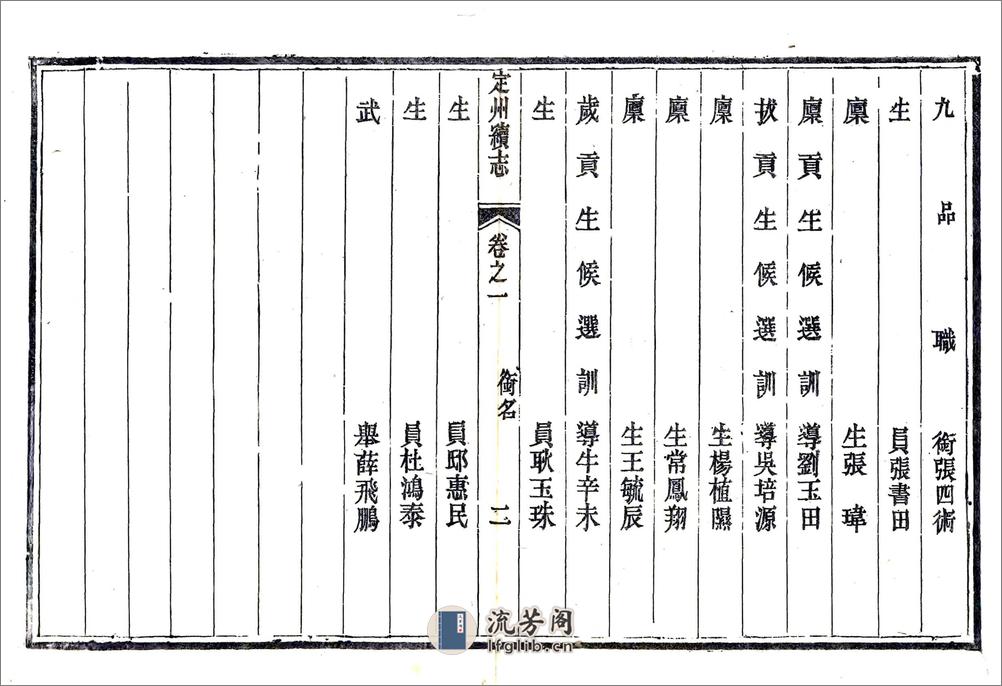 九品職銜張四術
生員張書田
廩生張瑋
廩貢生候選訓導劉玉田
拔貢生候選訓導吳培源
廩生楊植㬎
廩生常鳳翔
廩生王毓辰
歲貢生候選訓導牛辛未
生員耿玉珠
定州續志
卷之一
銜名
二
生員邸惠民
生員杜鴻泰
武舉薛飛鵬
流芳阁
lfglib.cn